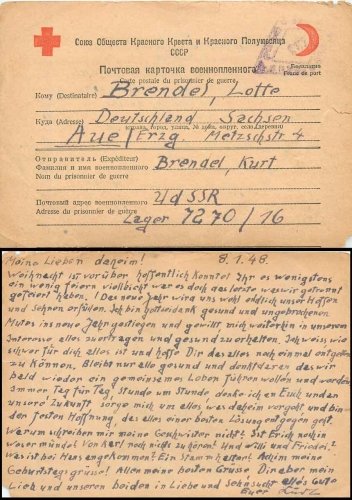 Союз Обществ Красного Креста и Красного Полумесяца
СССР
Почтовая карточка военнопленного
Бесплатно
Franc de port
Carte postale du prisonnier de guerre
Кому (Destinataire) Brendel, Lotte
Куда (Adresse) Deutschland Sachsen
страна, город, улица, № дома, округ, село, деревня
Aue/Erzg. Metzschstr 4
Отправитель (Expéditeur)
Фамилия и имя военнопленного Brendel, Kurt
Nom du prisonnier de guerre
Почтовый адрес военнопленного UdSSR
Adresse du prisonnier de guerre
Lager 7270/16
Meine Lieben daheim! 8.1.48.
Weihnacht ist vorüber hoffentlich konntet Ihr es wenigstens
ein wenig feiern vielleicht war es doch das letzte was wir getrennt
gefeiert haben! Das neue Jahr wird uns wohl endlich unser Hoffen
und Sehnen erfüllen. Ich bin gottseidank gesund und ungebrochenen
Mutes ins neue Jahr gestiegen und gewillt mich weiterhin in unserem
Interesse alles zu ertragen und gesund zu erhalten. Ich weis wie
schwer für dich alles ist und hoffe Dir das alles noch einmal entgelten
zu können. Bleibt nur alle gesund und denkt daran das wir
bald wieder ein gemeinsames Leben führen wollen und werden
immer Tag für Tag, Stunde um Stunde denke ich an Euch und an
unsere Zukunft sorge mich um alles was daheim vorgeht und bin
der festen Hoffnung, das alles einer besten Lösung entgegen geht.
Warum schreiben mir meine Geschwister nicht? Ist Erich noch in
Von Karl noch nichts zu hören? Und Willi und Frieda?
Was ist bei Hans angekommen? Ein Stammhalter? Achim meine
Geburtstagsgrüße! Allen meine besten Grüße. Dir aber mein
Lieb und unseren beiden in Liebe und Sehnsucht alles Gute
Euer Kurt